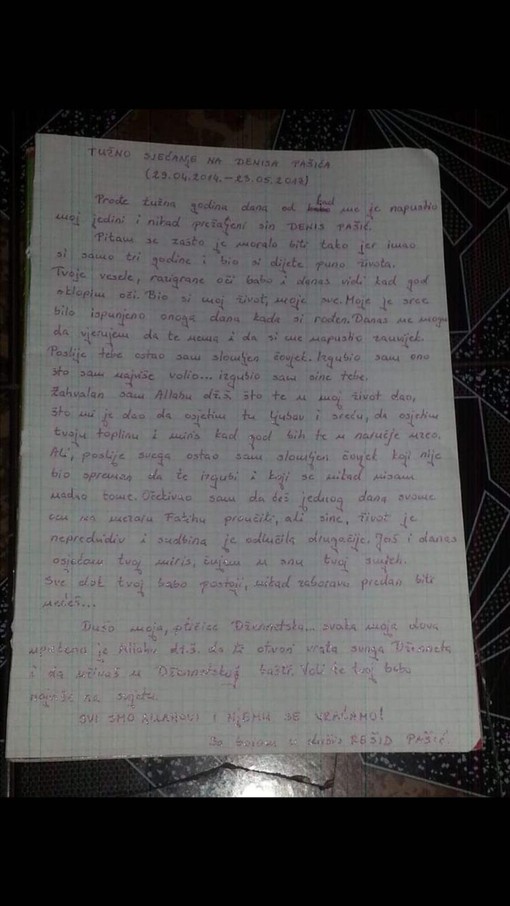 TUŽNO SJEĆANJE NA DENISA PAŠIĆA
(29.04.2014.-23.05.2017)
Prođe tužna godina dana od kad me je napustio
moj jedini i nikad prežaljeni sin DENIS PAŠIĆ.
Pitam se zašto je moralo biti tako jer imao
si samo tri godine i bio si dijete puno života.
Tvoje vesele, razigrane oči babo i danas vidi kad god
sklopim oči. Bio si moj život, moje sve. Moje je srce
bilo ispunjeno onoga dana kada si rođen. Danas ne mogu
da vjerujem da te nema i da si me napustio zauvijek.
Poslije tebe ostao sam slomljen čovjek. Izgubio sam ono
što sam najviše volio... izgubio sam sine tebe.
Zahvalan sam Allahu dž.š. što te u moj život dao,
što mi je dao da osjetim tu ljubav i sreću, da osjetim
tvoju toplinu i miris kad god bih te u naručje uzeo.
Ali, poslije svega ostao sam slomljen čovjek koji nije
bio spreman da te izgubi i koji se nikad nisam
nadao tome. Očekivao sam da ćeš jednog dana svome
ocu na mezaru Fatihu proučiti, ali sine, život je
nepredvidiv i sudbina je odlučila drugačije. Još i danas
osjećam tvoj miris, čujem u snu tvoj smijeh.
Sve dok tvoj babo postoji, nikad zaboravu predan biti
nećeš...
Dušo moja, ptičice Dženentska... svaka moja dova
upućena je Allahu dž.š. da ti otvori vrata svoga Dženneta
i da uživaš u Dženentskoj bašti. Voli te tvoj babo
najviše na svijetu.
SVI SMO ALLAHOVI I NJEMU SE VRAĆAMO!
Sa REŠID PAŠIĆ